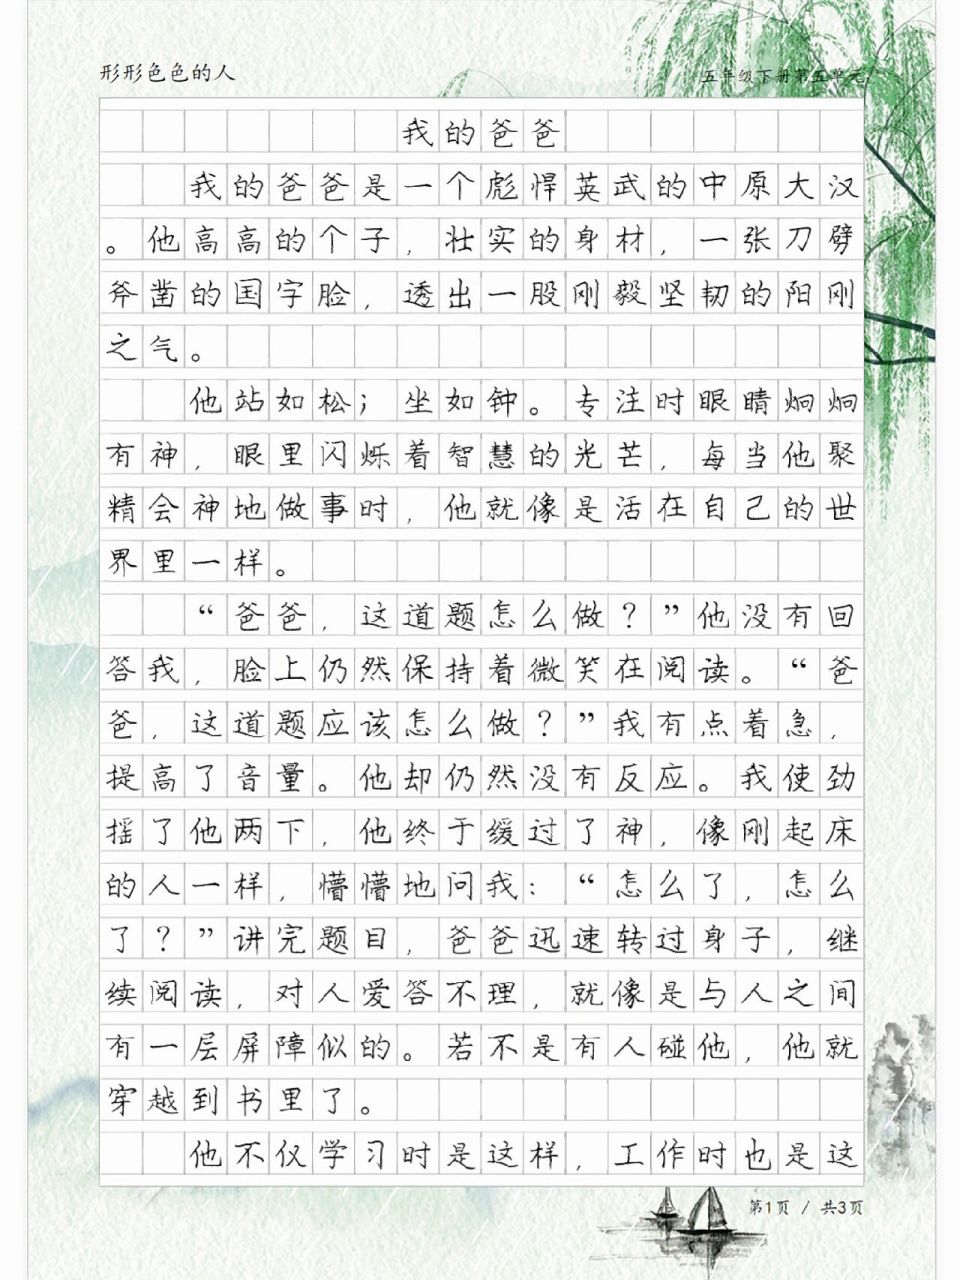 形形色色的人
五年级下册第五单元
我的爸爸
我的爸爸是一个彪悍英武的中原大汉
。他高高的个子，壮实的身材，一张刀劈
斧凿的国字脸，透出一股刚毅坚韧的阳刚
之气。
他站如松；坐如钟。专注时眼睛炯炯
有神，眼里闪烁着智慧的光芒，每当他聚
精会神地做事时，他就像是活在自己的世
界里一样。
“爸爸，这道题怎么做？”他没有回
答我，脸上仍然保持着微笑在阅读。“爸
爸，这道题应该怎么做？”我有点着急，
提高了音量。他却仍然没有反应。我使劲
摇了他两下，他终于缓过了神，像刚起床
的人一样，懵懵地问我：“怎么了，怎么
了？”讲完题目，爸爸迅速转过身子，继
续阅读，对人爱答不理，就像是与人之间
有一层屏障似的。若不是有人碰他，他就
穿越到书里了。
他不仅学习时是这样，工作时也是这
第1页 / 共3页